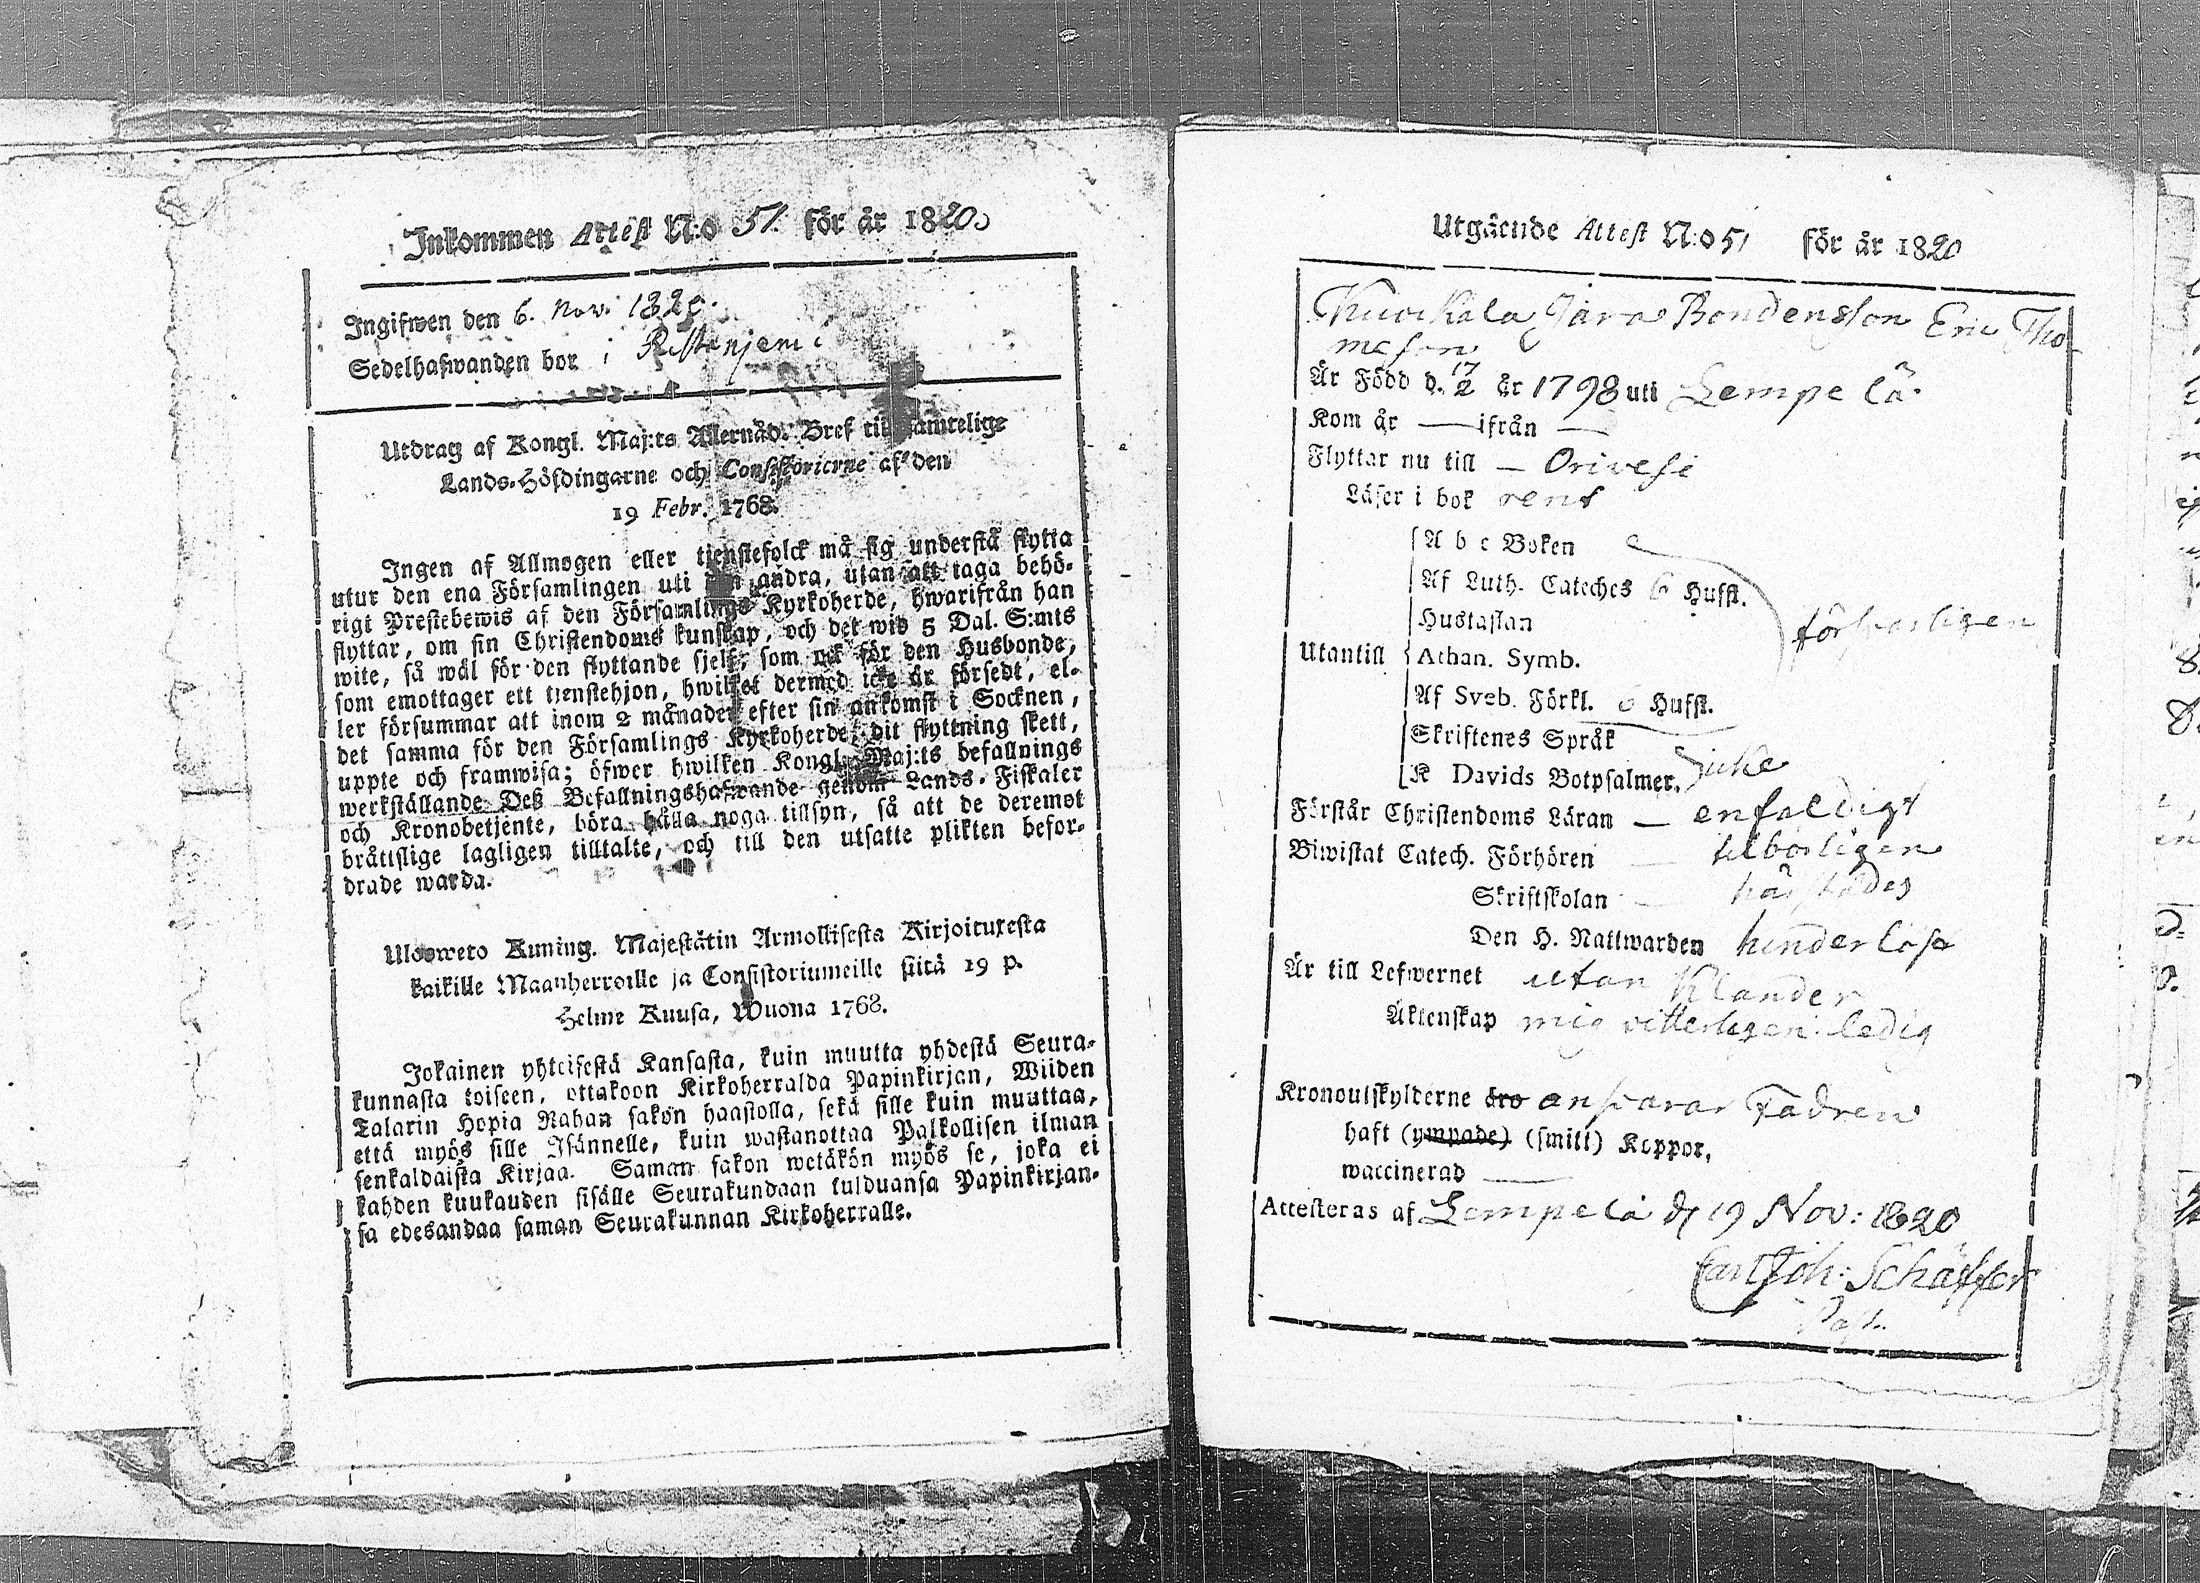 Inkommen Attest N:o 51. för år 1820.
Ingifwen den 6. Nov. 1820.
Sedelhafwanden bor i
Utdrag af Kongl. Maj:ts Allernåd: Bref till samtelige
Lands-Höfdingarne och Consistorierne af den
19 Febr. 1768.
Ingen af Allmogen eller tjenstefolck må sig understå flytta
utur den ena Församlingen uti den andra, utan att taga behö-
rigt Prestebewis af den Församlings Kyrkoherde, hwarifrån han
flyttar, om sin Christendoms kunskap, och det wid 5 Dal. S:mts
wite, så wäl för den flyttande sjelf, som ock för den Husbonde,
som emottager ett tjenstehjon, hwilket dermed icke är försedt, el-
ler försummar att inom 2 månader efter sin ankomst i Socknen,
det samma för den Församlings Kyrkoherde, dit flyttning skett,
uppte och framwisa; öfwer hwilken Kongl. Maj:ts befallnings
werkställande Deß Befallningshafwande genom Lands-Fiskaler
och Kronobetjente, böra hålla noga tillsyn, så att de deremot
bråttslige lagligen tilltalte, och till den utsatte plikten befor-
drade warda.
Ulosweto Kuning. Majestätin Armollisesta Kirjoituxesta
kaikille Maanherroille ja Consistoriumeille siitä 19 p.
Helme Kuusa, Wuona 1768.
Jokainen yhteisestä Kansasta, kuin muutta yhdestä Seura-
kunnasta toiseen, ottakoon Kirkoherralda Papinkirjan, Wiiden
Talarin Hopia Rahan sakon haastolla, sekä sille kuin muuttaa,
että myös sille Isännelle, kuin wastanottaa Palkollisen ilman
senkaldaista Kirjaa. Saman sakon wetäkön myös se, joka ei
kahden kuukauden sisälle Seurakundaan tulduansa Papinkirjan-
sa edesandaa saman Seurakunnan Kirkoherralle.
Utgående Attest N:o 51 för år 1820
Bondensson Eric Tho
meson
Är Född d. 17/2 år 1798 uti Lempelä.
Kom år — ifrån —
Flyttar nu till — Orivesi
Läser i bok rent
Utantill
A b c Boken
Af Luth. Cateches 6 Hufst.
Hustaflan
Athan. Symb.
Af Sveb. Förkl. 6 Hufst.
försvarligen
Skriftenes Språk
K Davids Botpsalmer. icke
Förstår Christendoms Läran — enfaldigt
Biwistat Catech. Förhören — tilbörligen
Skriftskolan — härstädes
Den H. Nattwarden hinderlöst
Är till Lefwernet utan klander
Äktenskap mig vitterligen ledig
Kronoutskylderne äro ansvarar Fadren
haft (ympade) (smitt) Koppor,
waccinerad —
Attesteras af Lempelä d 19 Nov: 1820
Carl Joh: Schäffer
Past.